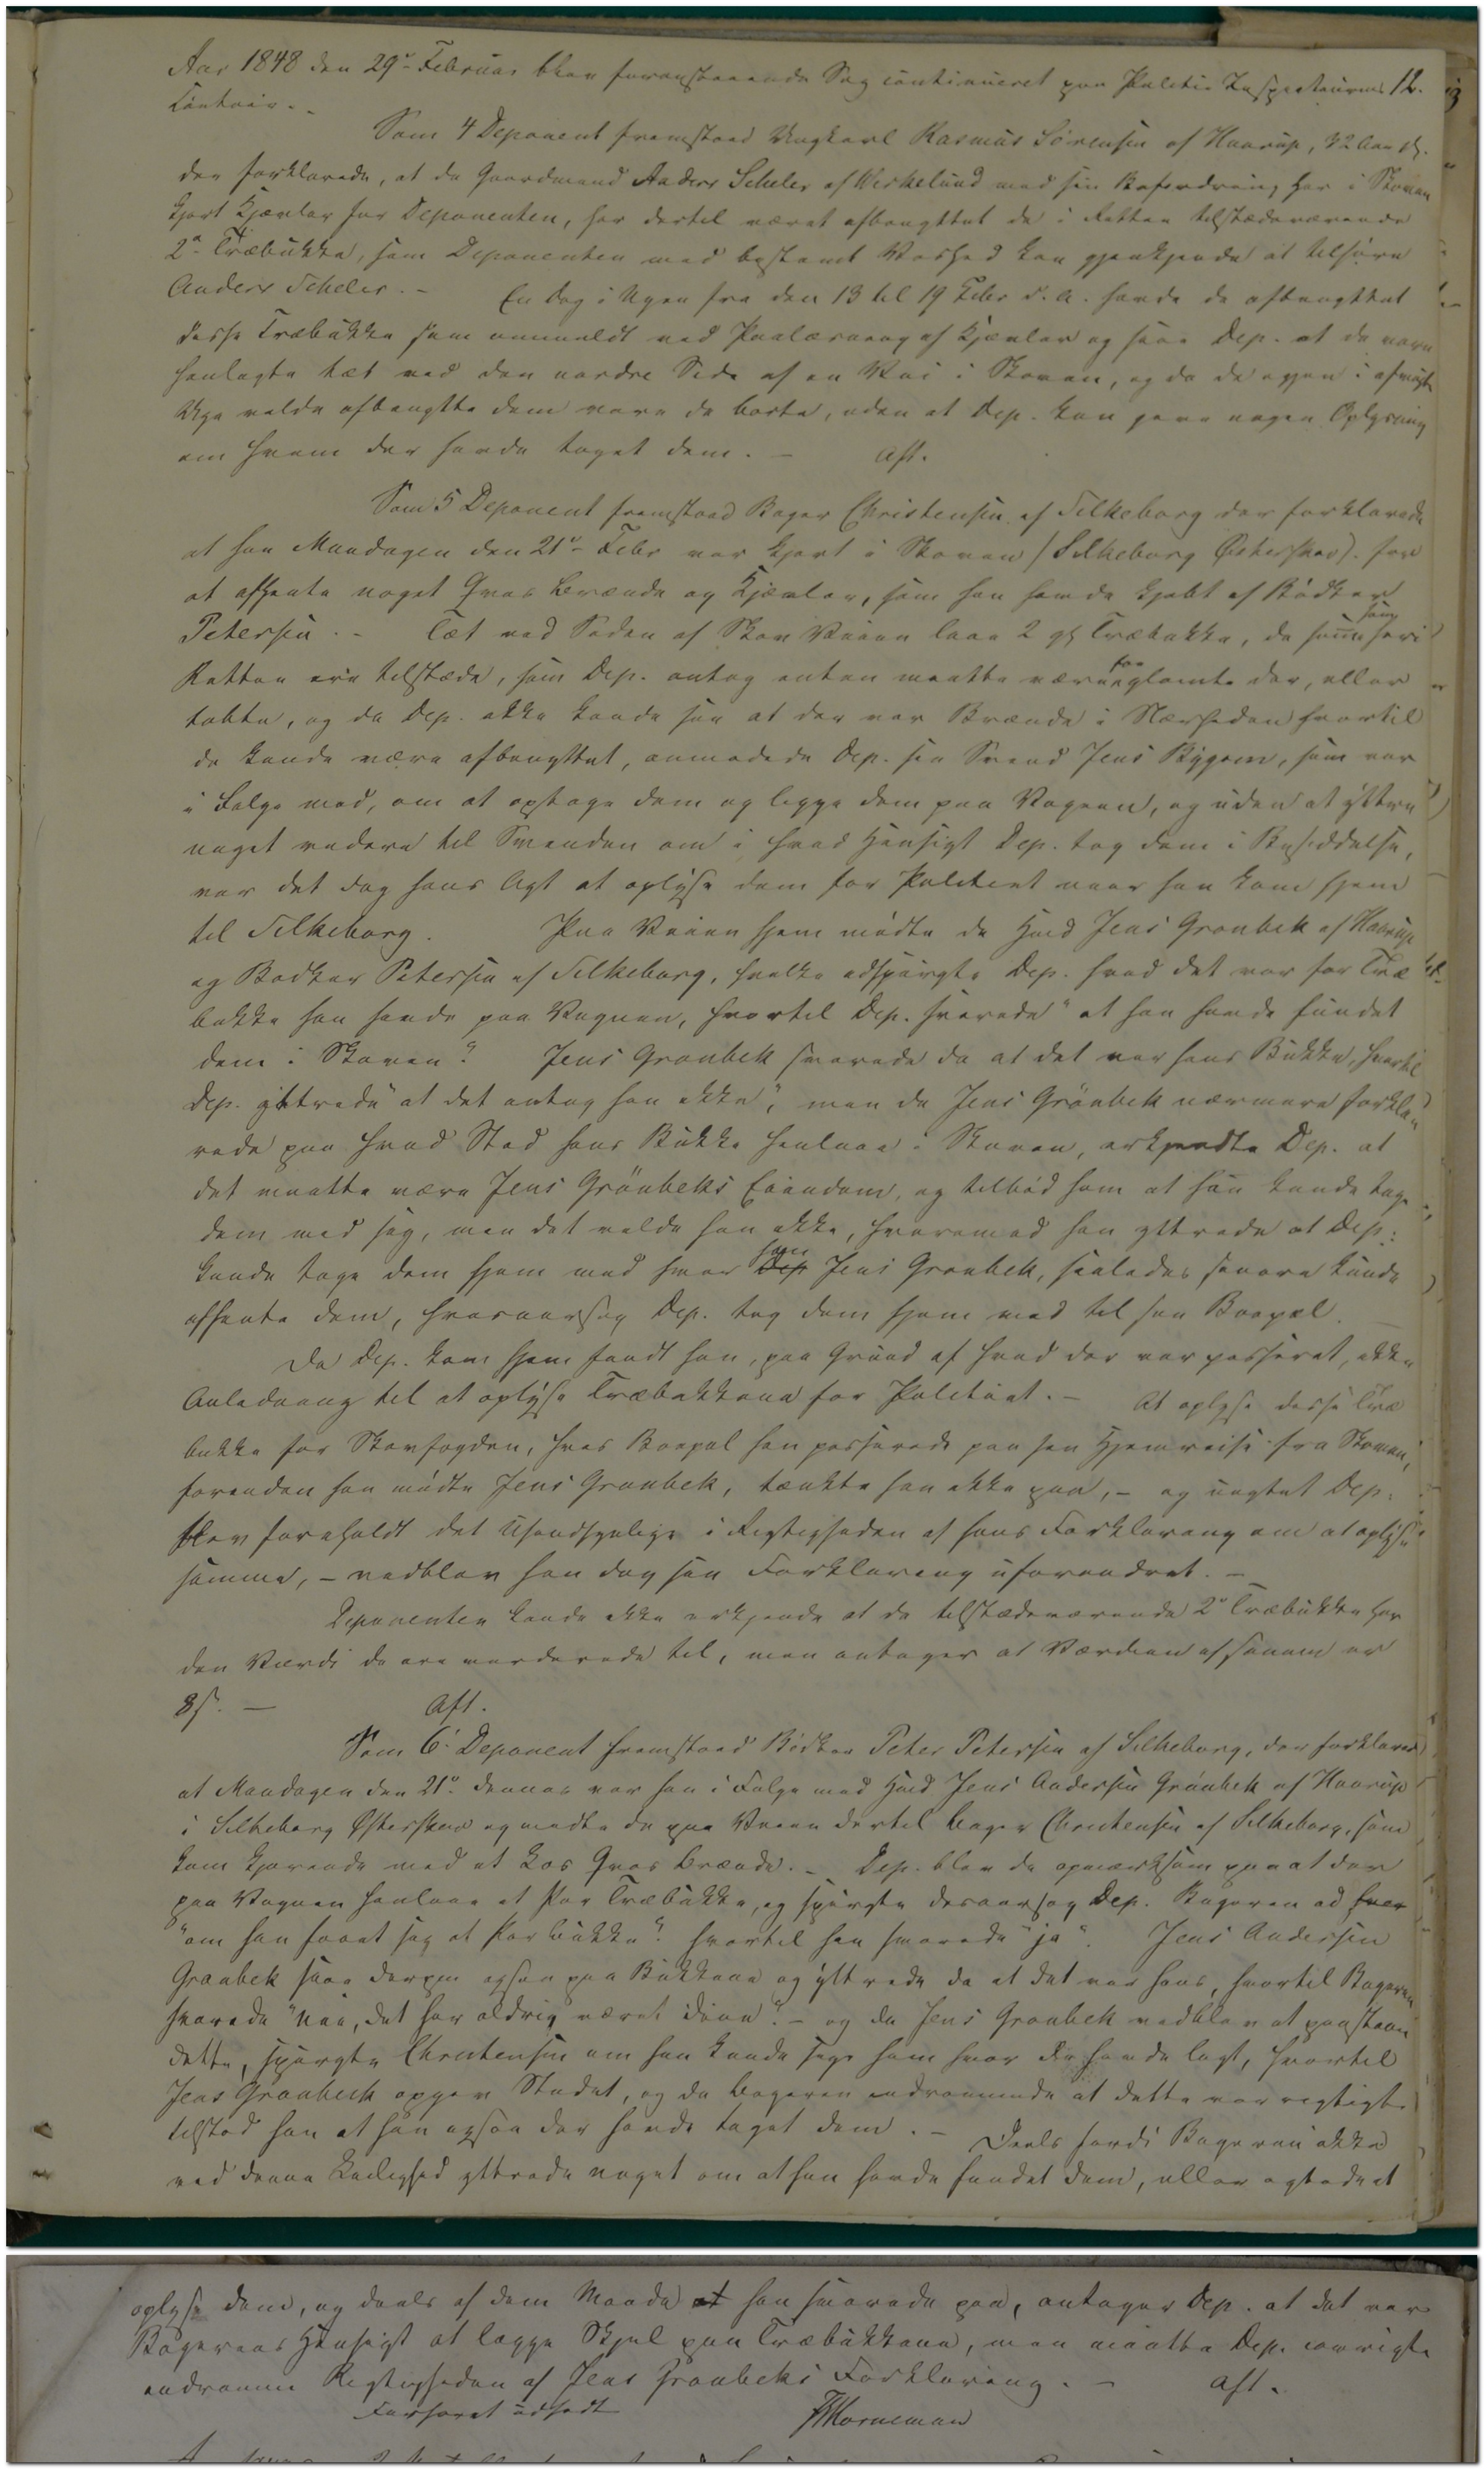 Aar 1848 den 29de Februar blev foranstaaende Sag continueret paa Politie Inspecteurens 12.
Contoir. -
Som 4 Deponent fremstoed Ungkarl Rasmus Sørensen af Haarup, 32 Aar gl.
der forklarede, at da Gaardmand Anders Scheler af Werkelund med sin Befordring har i Skoven
kjørt Kjævler for Deponenten, har dertil været afbenyttet de i Retten tilstædeværende
2de Træbukke, som Deponenten med bestemt Vished kan gjenkjende at tilhøre
Anders Scheler. - En Dag i Ugen fra den 13 til 19 Febr d. A. havde de afbenyttet
disse Træbukke som anmeldt ved Paalæsning af Kjævler og saae Dep. at de vare
henlagte tæt ved den nordre Side af en Vei i Skoven, og da de igjen i afvigte
Uge vilde afbenytte dem vare de borte, uden at Dep. kan give nogen Oplysning
om hvem der havde taget dem. - Aft.
Som 5 Deponent fremstoed Bager Christensen af Silkeborg der forklarede
at han Mandagen den 21de Febr var kjørt i Skoven (Silkeborg Østerskov) for
at afhente noget Qvas Brænde og Kjævler, som han havde kjøbt af Bødker
Petersen. - Tæt ved Siden af Skov Veien laae 2 gl Træbukke, de samme som her i
Retten ere tilstæde, som Dep. antog enten maatte være forglemte der, eller
tabte, og da Dep. ikke kunde see at der var Brænde i Nærheden hvortil
de kunde være afbenyttet, anmodede Dep. sin Svend Jens Bygom, som var
i Følge med, om at optage dem og ligge dem paa Vognen, og uden at yttre
noget videre til Svenden om i hvad Hensigt Dep. tog dem i Besiddelse,
var det dog hans Agt at oplyse dem for Politiet naar han kom hjem
til Silkeborg. Paa Veien hjem mødte de Hmd Jens Grønbek af Haarup
og Bødker Petersen af Silkeborg, hvilke adspurgte Dep. hvad det var for Træ
bukke han havde paa Vognen, hvortil Dep. svarede "at han havde fundet
dem i Skoven". Jens Grønbek svarede da at det var hans Bukke, hvortil
Dep. yttrede "at det antog han ikke", men da Jens Grönbek nærmere forkla
rede paa hvad Sted hans Bukke henlaae i Skoven, erkjendte Dep. at
det maatte være Jens Grönbeks Eiendom, og tilbød ham at han kunde tage
dem med sig, men det vilde han ikke, hvorimod han yttrede at Dep:
kunde tage dem hjem med hvor han Dep Jens Grønbek, saaledes senere kunde
afhente dem, hvesaarsag Dep. tog dem hjem med til sin Boepæl.
Da Dep. kom hjem fandt han, paa Grund af hvad der var passeret, ikke
Anledning til at oplyse Træbukkene for Politiet. - At oplyse disse Træ
bukke for Skovfogden, hvis Boepæl han passerede paa sin Hjemreise fra Skoven,
forenden han mødte Jens Grønbek, tænkte han ikke paa, - og uagtet Dep.
blev foreholdt det Usandsynlige i Rigtigheden af hans Forklaring om at oplyse
samme, - vedblev han dog sin Forklaring uforandret. -
Deponenten kunde ikke erkjende at de tilstædeværende 2de Træbukke har
den Værdi de ere vurderede til, men antager at Værdien af samme er
8 s. - Aft.
Som 6 Deponent fremstoed Bødker Peter Petersen af Silkeborg, der forklarede
at Mandagen den 21de dennes var han i Følge med Hmd Jens Andersen Grønbek af Haarup
i Silkeborg Østerskov og mødte de paa Veien dertil Bager Christensen af Silkeborg, som
kom kjørende med et Læs Qvas Brænde. - Dep. blev da opmærksom paa at der
paa Vognen henlaae et Par Træbukke, og spurgte desaarsag Dep. Bageren ad hvor
"om han faaet sig et Par Bukke"? hvortil han svarede "ja". Jens Andersen
Grønbek saae derpaa ogsaa paa Bukkene og yttrede da at det var hans, hvortil Bageren
svarede "nei, det har aldrig været dine". - og da Jens Grønbek vedblev at paastaae
dette, spurgte Christensen om han kunde sige ham hvor de havde ligt, hvortil
Jens Grønbeck opgav Stedet, og da Bageren indrømmede at dette var rigtigt
tilstod han at han ogsaa der havde taget dem. - Deels fordi Bageren ikke
ved denne Leilighed yttrede noget om at han havde fundet dem, eller agtede at
oplyse dem, og deels af dem Maade at han svarede paa, antager Dep. at det var
Bagerens Hensigt at lægge Skjul paa Træbukkene, men maatte Dep. iøvrigt
indrømme Rigtigheden af Jens Grønbeks Forklaring. - Aft.
Forhøret udsadt
Horneman